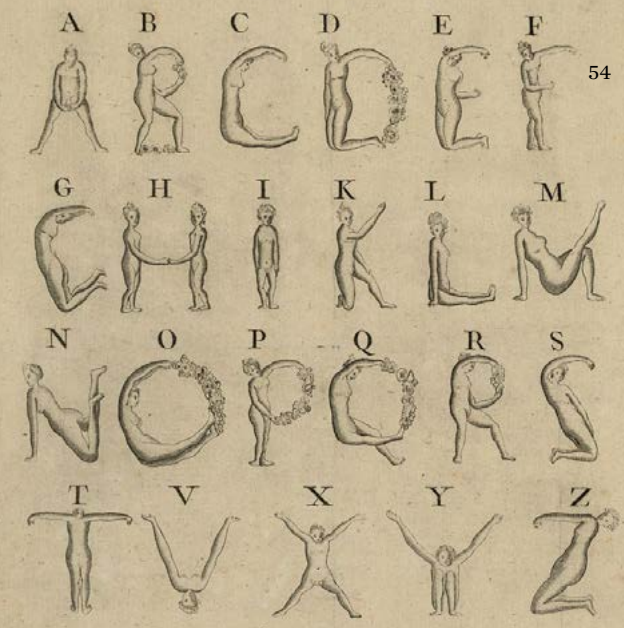 A B C D E F
54
G H I K L M
N O P Q R S
T V X Y Z